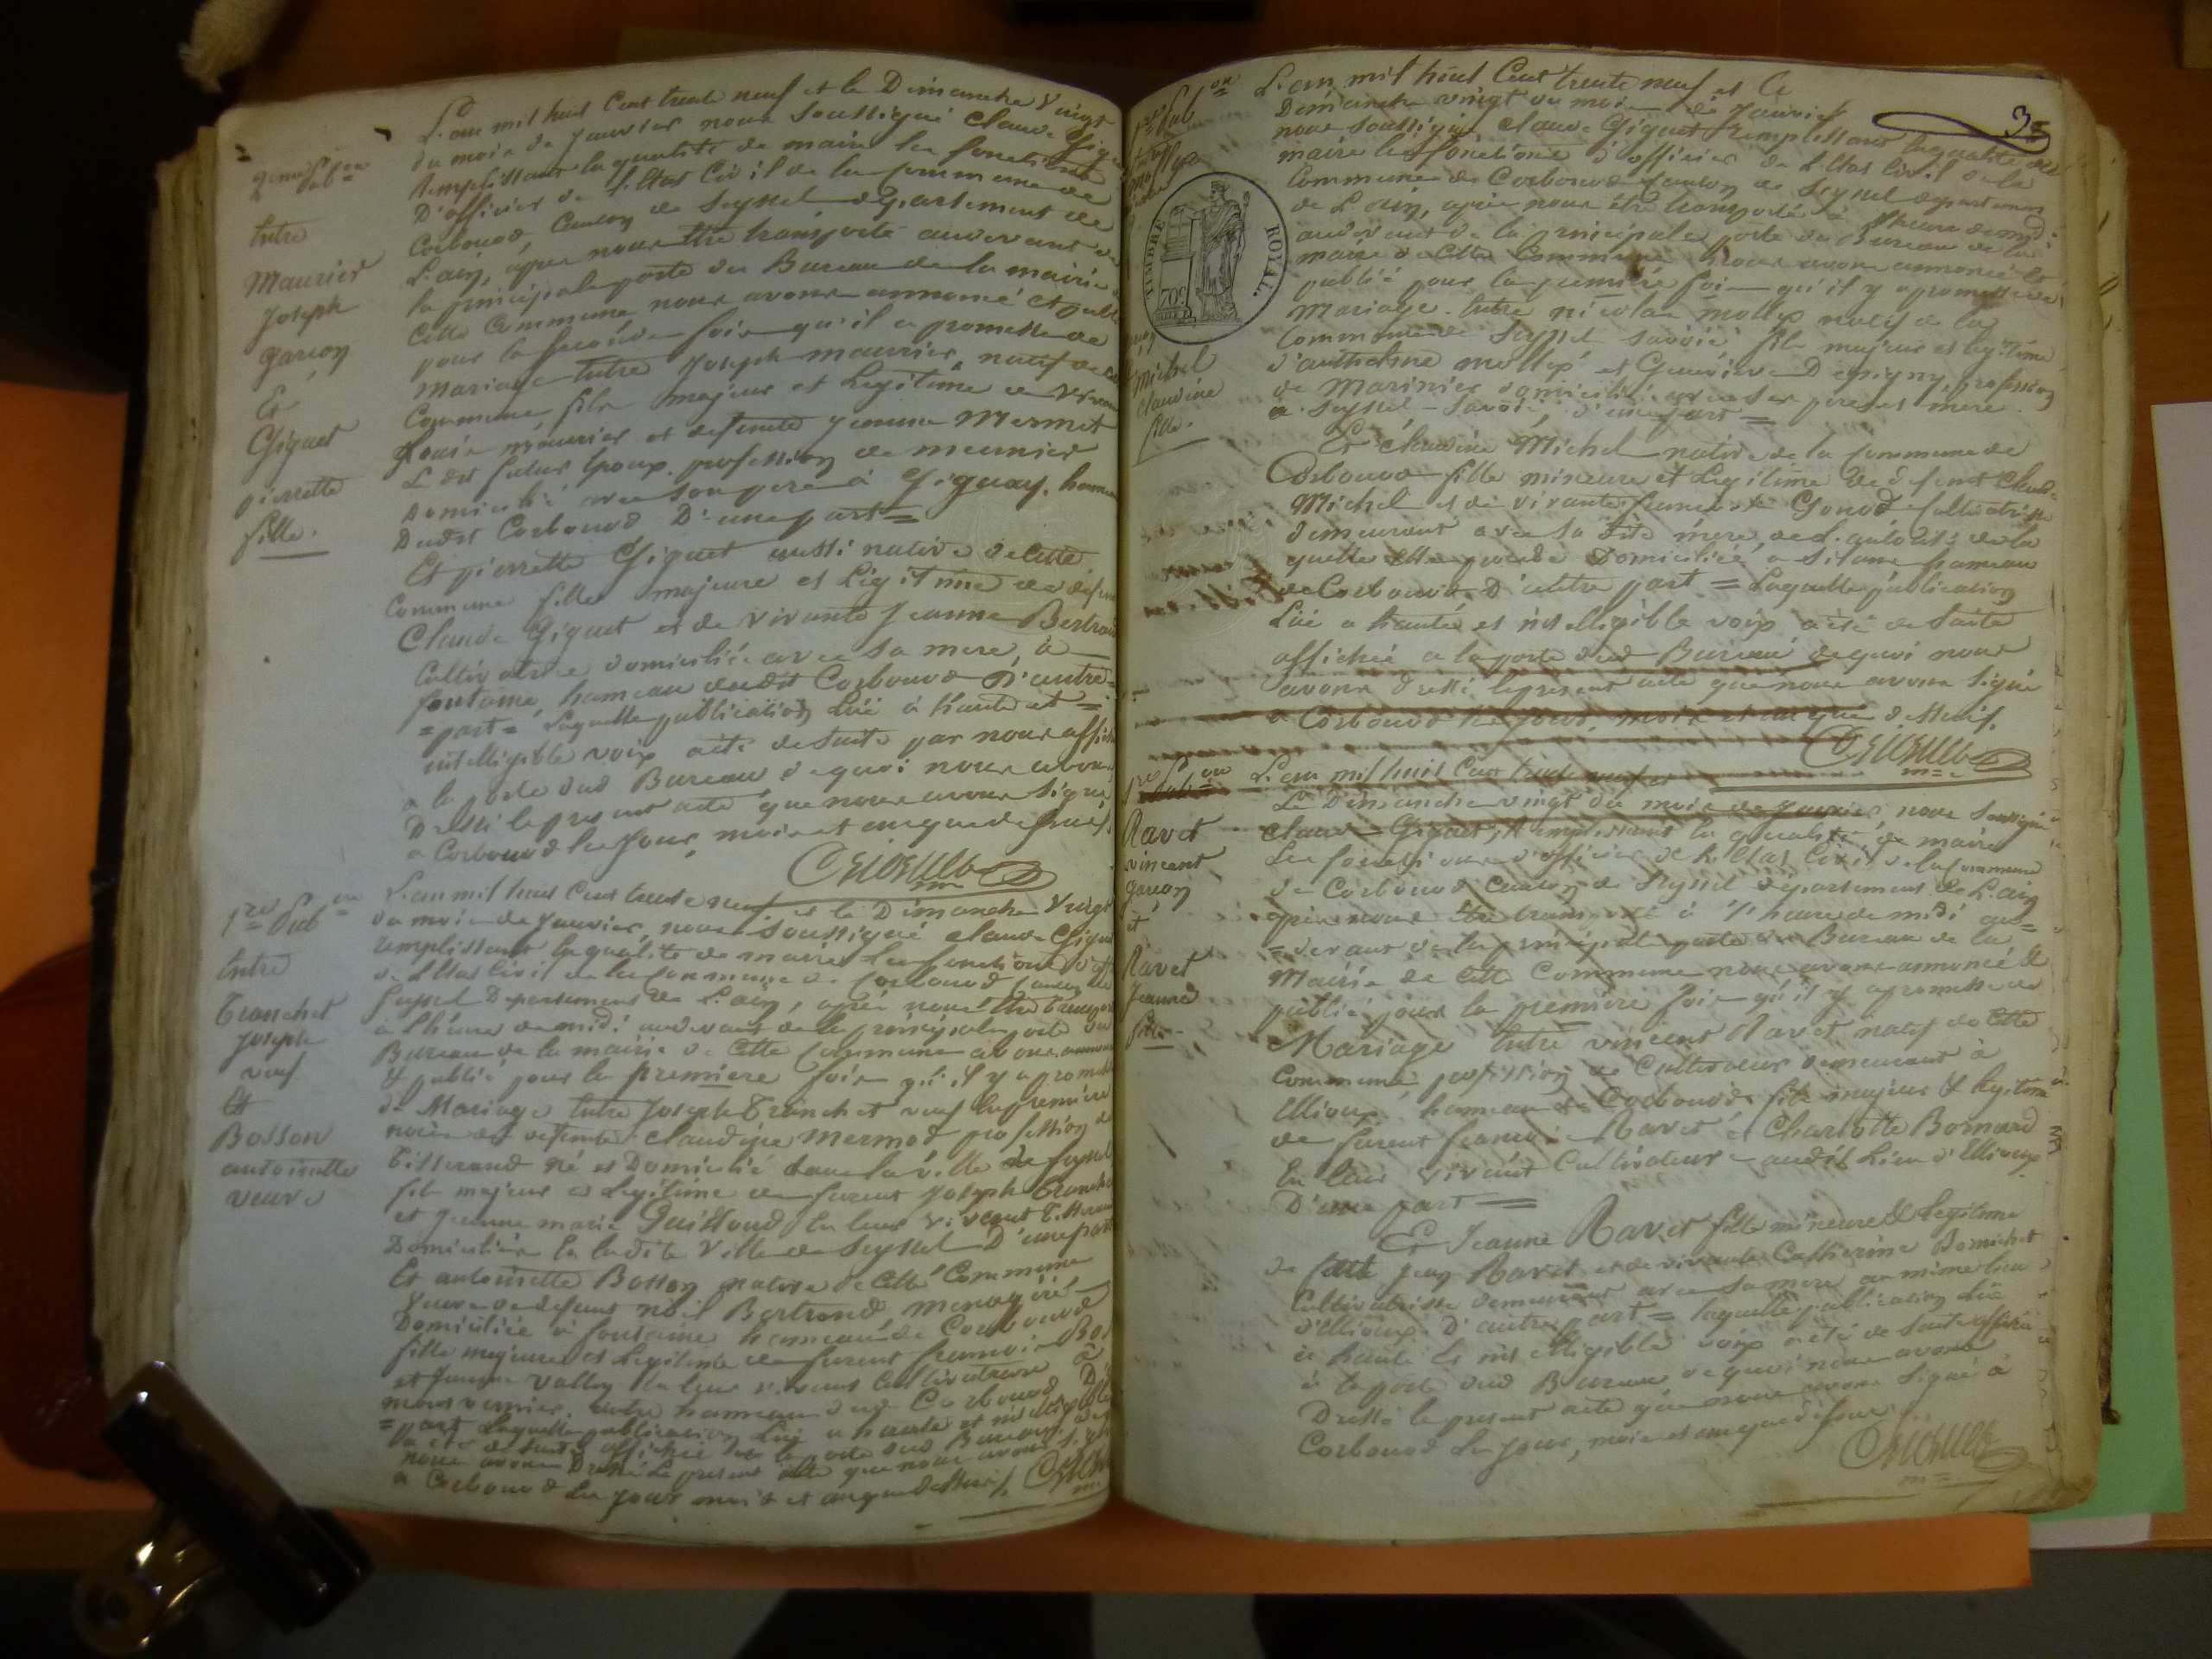 2
2eme Pub on
Entre
Maurier
Joseph
garçon
Et
Giguet
pierrette
fille.
L'an mil huit Cent trente neuf et le Dimanche Vingt
du mois de Janvier nous soussigné Claude Gigu
Remplissant la qualité de maire les fonctions
D'officier de l'Etat Civil de la Commune de
Corbonod, Canton de Seyssel département de
L'ain, après nous être transporté audevant de
la principale porte du Bureau de la mairie d
Cette Commune nous avons annoncé et publ
pour la seconde fois qu'il a promesse de
mariage Entre Joseph maurier, natif de
Commune fils majeur et Legitime de
Louis maurier et defunte jeanne Mermet
L dit futur Epoux profession de meunier
domicilié avec son pere à Gignay, hameau
Dudit Corbonod D'une part =
Et pierrette Giguet aussi native de Cette
Commune fille majeure et Légitime de defun
Claude Giguet et de vivante Jeanne Bertrand
Cultivatrice domiciliée avec sa mere, à
fontaine, hameau dudit Corbonod D'autre =
= part = Laquelle publication Lüe à haute et =
intelligible voix a été de suite par nous affich
a la porte dud Bureau de quoi nous avons
Dressé le present acte que nous avons signé
a Corbonod les jour, mois et an que dessus
1re Pub on
Entre
Tranchet
Joseph
veuf
Et
Bosson
antoinette
veuve
L'an mil huit Cent trente neuf et le Dimanche Vingt
du mois de Janvier, nous Soussigné Claude Gigue
remplissant la qualité de maire Les fonctions d'off
de l'Etat Civil de la Commune de Corbonod Canton de
Seyssel Departement de L'ain, après nous être transpor
à l'heure de midi audevant de la principale porte du
Bureau de la mairie de Cette Commune avons annon
& publié pour la premiere fois qu'il y a prome
de Mariage Entre Joseph Tranchet veuf En premiere
noces de defunte Claudine Mermod profession de
Tisserand né et Domicilié dans la ville de Seyssel
fils majeur & Legitime de furent Joseph Tranche
et Jeanne marie En leur vivant Tisseran
Domiciliés En la dite Ville de Seyssel D'une part
Et antoinette Bosson native de Cette Commune
Veuve de defunt Bertrand menagère
Domiciliée à fontaine hameau de Corbonod
fille majeure et Legitime de furent francois Bos
et Jeanne Vallin En leur vivant Cultivateurs à
autre hameau dud Corbonod D'au
= part Laquelle publication Lüe a haute et intelligible
a été de suite affichée à la porte dud Bureau de
nous avons Dressé Le present acte que nous avons sig
a Corbonod Les jour mois et an que dessus
3
TIMBRE ROYAL.
70c
Michel
Claudine
fille.
L'an mil huit Cent trente neuf et le
Dimanche vingt du mois de Janvier
nous soussigné Claude Giguet Remplissant la qualité de
maire les fonctions d'officier de l'Etat Civil de la
Commune de Corbonod Canton de Seyssel département
de L'ain, après nous être transporté à l'heure de midi
audevant de la principale porte du Bureau de la
mairie de Cette Commune Nous avons annoncé et
publié pour la premiere fois qu'il y a promesse de
Mariage Entre nicolas mollex natif de la
Commune de Seyssel Savoie fils majeur et legitime
d'anthelme mollex et profession
de Marinier domicilié avec ses pere et mere
a Seyssel - Savoie, d'une part =
Et Claudine Michel native de la Commune de
Corbonod fille mineure et Legitime de defunt Claude
Michel et de vivante françoise Gonod Cultivatrice
demeurant avec sa dite mere, de l'autorité de la
quelle Elle procede Domiciliée a Silans hameau
de Corbonod D'autre part = Laquelle publication
Lüe a haute et intelligible voix a été de suite
affichée a la porte dud Bureau de quoi nous
avons dressé le present acte que nous avons signé
a Corbonod les jour, mois et an que dessus.
1re Pub on
Ravet
vincent
garçon
et
Ravet
Jeanne
fille
L'an mil huit Cent trente neuf et
Le Dimanche vingt du mois de Janvier, nous soussigné
Claude Giguet, Remplissant la qualité de maire
Les fonctions d'officier de L'Etat Civil de la Commune
de Corbonod Canton de Seyssel département de L'ain
après nous être transporté à l'heure de midi au=
=devant de la principale porte du Bureau de la
Mairie de Cette Commune nous avons annoncé &
publié pour la premiere fois qu'il y a promesse de
Mariage Entre vincent Ravet natif de Cette
Commune profession de Cultivateur demeurant à
Elioux hameau de Corbonod fils majeur & legitime
de furent francois Ravet & Charlotte Bornard
En leur vivant Cultivateurs audit Lieu d'Elioux
D'une part =
Et Jeanne Ravet fille mineure & Legitime
de Jean Ravet et de vivante Catherine Bornichet
Cultivatrice demeurant avec sa mere au même lieu
d'Elioux D'autre part = laquelle publication Lüe
à haute & intelligible voix a été de suite affiché
à la porte dud Bureau de quoi nous avons
Dressé le present acte que nous avons signé à
Corbonod Les jour, mois et an que dessus